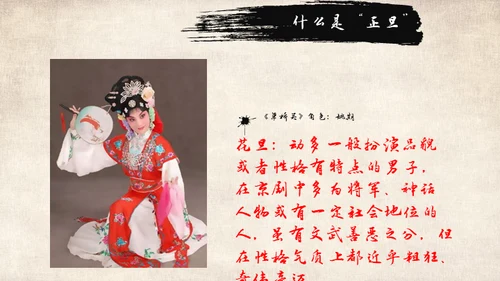 什么是“正旦”
《单骑英》角色：姚期
花旦：动多一般扮演品貌
或者性格有特点的男子，
在京剧中多为将军、神话
人物或有一定社会地位的
人，虽有文武善恶之分，但
在性格气质上都近乎粗狂、
奇伟豪迈